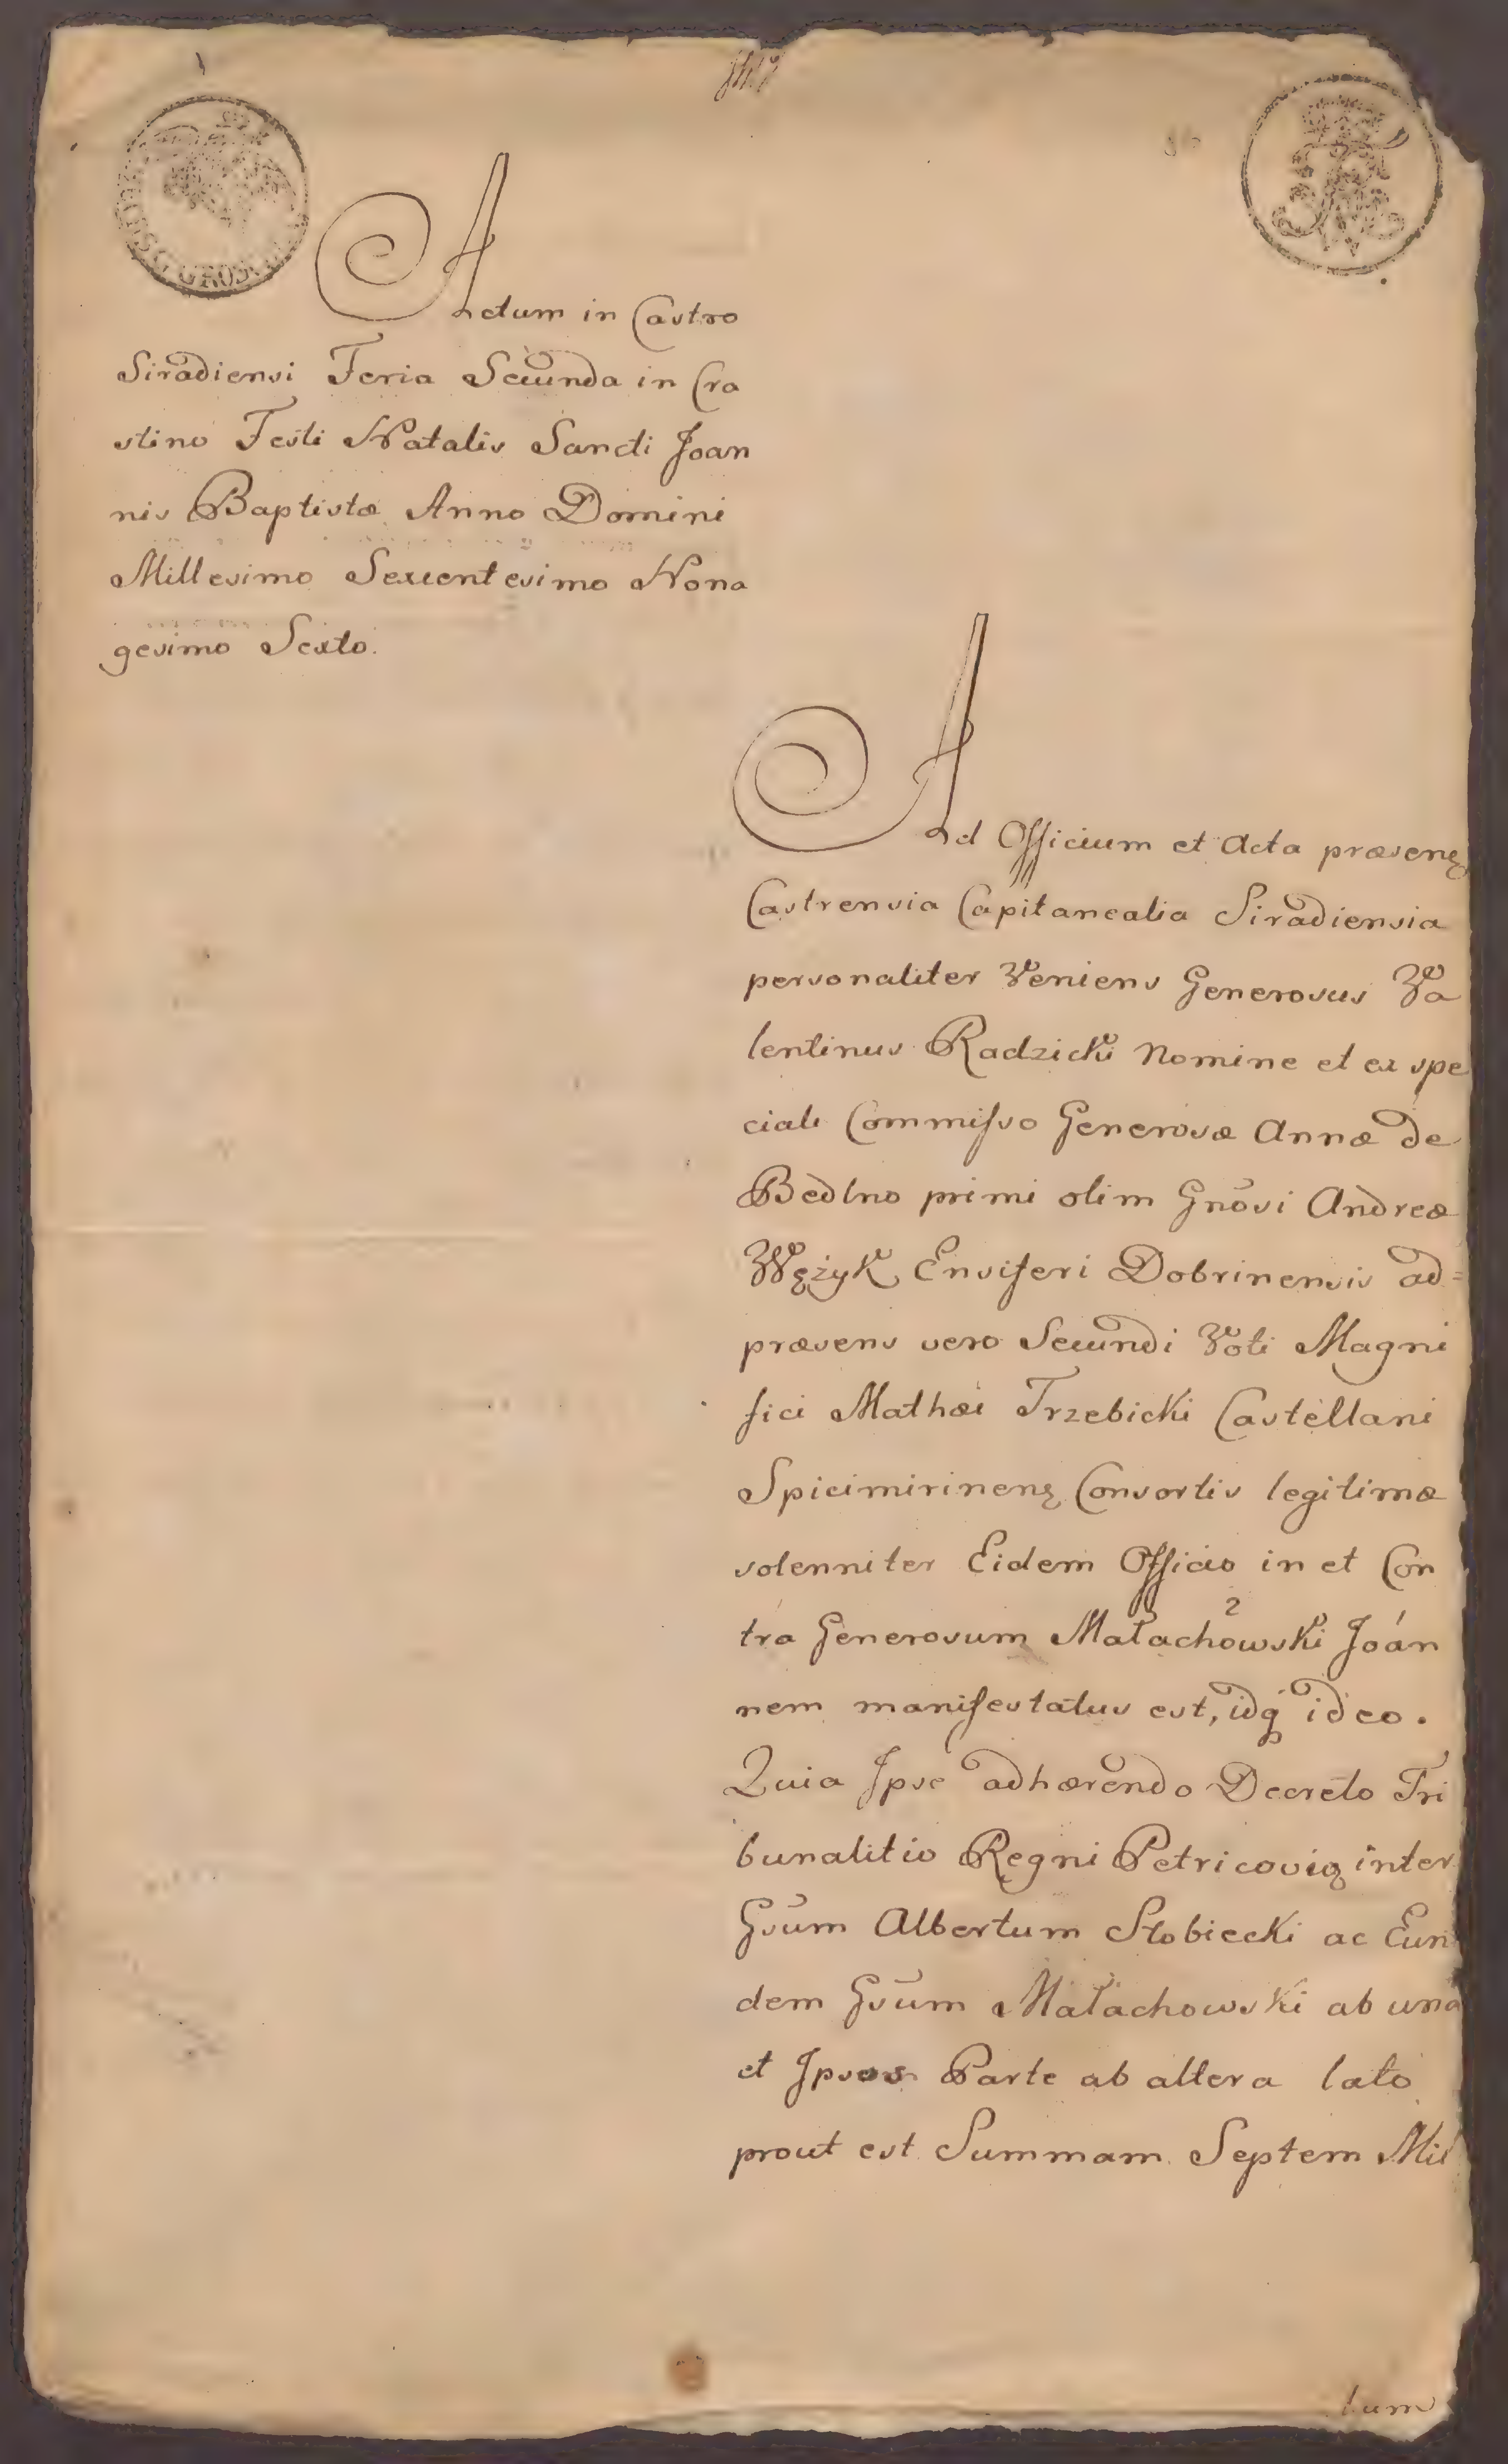 Actum in Castro
Siradiensi Feria Secunda in Cra
stino Festi Natalis Sancti Joan
nis Baptistæ Anno Domini
Millesimo Sexcentesimo Nona
gesimo Sexto.
Ad Officium et Acta præsenę
Castrensia Capitanealia Siradiensia
personaliter Veniens Generosus Va
lentinus Radzicki Nomine et ex spe
ciali Commisso Generosæ Annæ de
Bedlno primi olim Gnōsi Andreæ
Wężyk Ensiferi Dobrinensis ad=
præsens vero Secundi Voti Magni
fici Mathæi Trzebicki Castellani
Spicimirinenę Consortis legitimæ
solenniter Eidem Officio in et Con
tra Generosum Małachowski Joán
nem manifestatus est, idq ideo.
Quia Ipse adhærendo Decreto Tri
bunalitio Regni Petricovię inter
Gsūm Albertum Słobiecki ac Eun
dem Gsūm Małachowski ab una
et Ipsos Parte ab altera lato
prout est Summam Septem Mil
lum